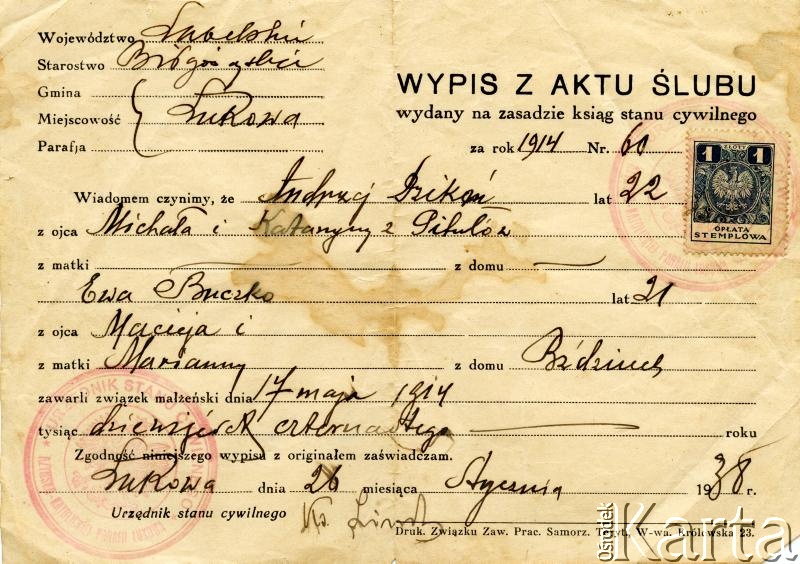 Województwo Lubelskie
Starostwo Biłgorajskie
Gmina
Miejscowość Łukowa
Parafja
WYPIS Z AKTU ŚLUBU
wydany na zasadzie ksiąg stanu cywilnego
za rok 1914 Nr. 60
1 ZŁOTY 1
OPŁATA
STEMPLOWA
Wiadomem czynimy, że Andrzej lat 22
z ojca Michała i Katarzyny z
z matki — z domu —
Ewa Buczko lat 21
z ojca Macieja i
z matki Marianny z domu
zawarli związek małżeński dnia 17 maja 1914
tysiąc dziewięćset czternastego — roku
Zgodność niniejszego wypisu z originałem zaświadczam.
Łukowa dnia 26 miesiąca Stycznia 1938 r.
Urzędnik stanu cywilnego Ks.
Druk. Związku Zaw. Prac. Samorz. Teryt., W-wa. Królewska 23.
URZĘDNIK STANU CYWILNEGO
Ośrodek Karta